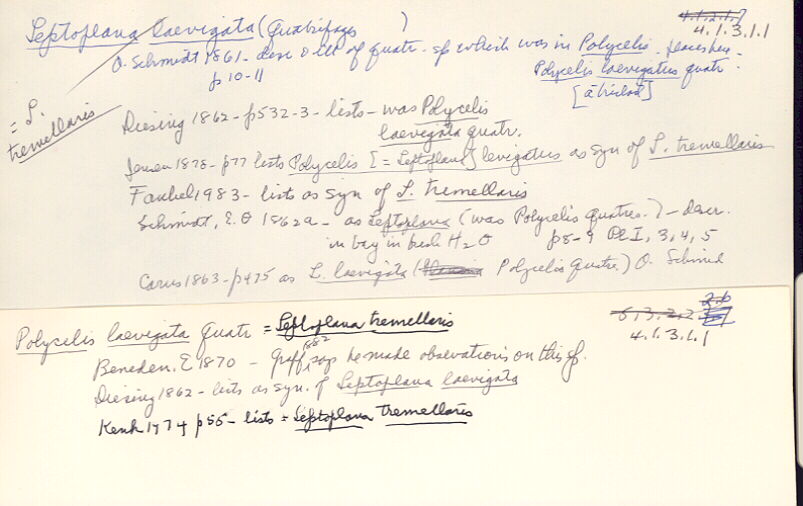 Leptoplana laevigata (Quatrefages )
4.1.2.1.7
4.1.3.1.1
O. Schmidt 1861 - desc & ill of quatr. sp which was in Polycelis.
p 10-11
Polycelis laevigatus quatr.
= L. tremellaris
Diesing 1862 - p532-3 - lists - was Polycelis
laevigata quatr.
Jensen 1878 - p77 lists Polycelis [= Leptoplana] levigatus as syn of L. tremellaris
Faubel 1983 - lists as syn of L. tremellaris
Schmidt, E.O 1862a - as Leptoplana (was Polycelis Quatres.) - descr.
in bay in fresh H2O p8-9 Pl I, 3, 4, 5
Carus 1863 - p475 as L. laevigata ( Polycelis Quatre.) O. Schmid
Polycelis laevigata Quatr = Leptoplana tremellaris
6.3.2.2.
2.6
4.1.3.1.1
Beneden, E 1870 - Graff 1882 says he made observations on this sp.
Diesing 1862 - lists as syn. of Leptoplana laevigata
Kenk 1974 p55 - lists = Leptoplana tremellaris